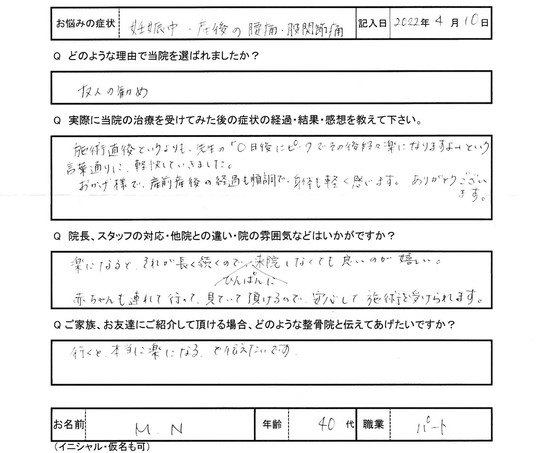 お悩みの症状 妊娠中・産後の腰痛・股関節痛 記入日 2022年 4月 10日
Q どのような理由で当院を選ばれましたか？
友人の勧め
Q 実際に当院の治療を受けてみた後の症状の経過・結果・感想を教えて下さい。
施術直後というよりも、先生の「○日後にピークでその後
楽になりますよ」という
言葉通りに、軽快していきました。
おかげ様で、産前産後の経過も順調で、身体も軽く感います。 ありがとうござい
ます。
Q 院長、スタッフの対応・他院との違い・院の雰囲気などはいかがですか？
楽になると、それが長く続くので、来院しなくても良いのが嬉しい。
ひんぱんに
赤ちゃんも連れて行って、見ていて頂けるので、安心して施術を受けられます。
Qご家族、お友達にご紹介して頂ける場合、どのような整骨院と伝えてあげたいですか？
行くと、本当に楽になる、と伝えたいです。
お名前 M. N 年齢 40代 職業 パート
(イニシャル・仮名も可)